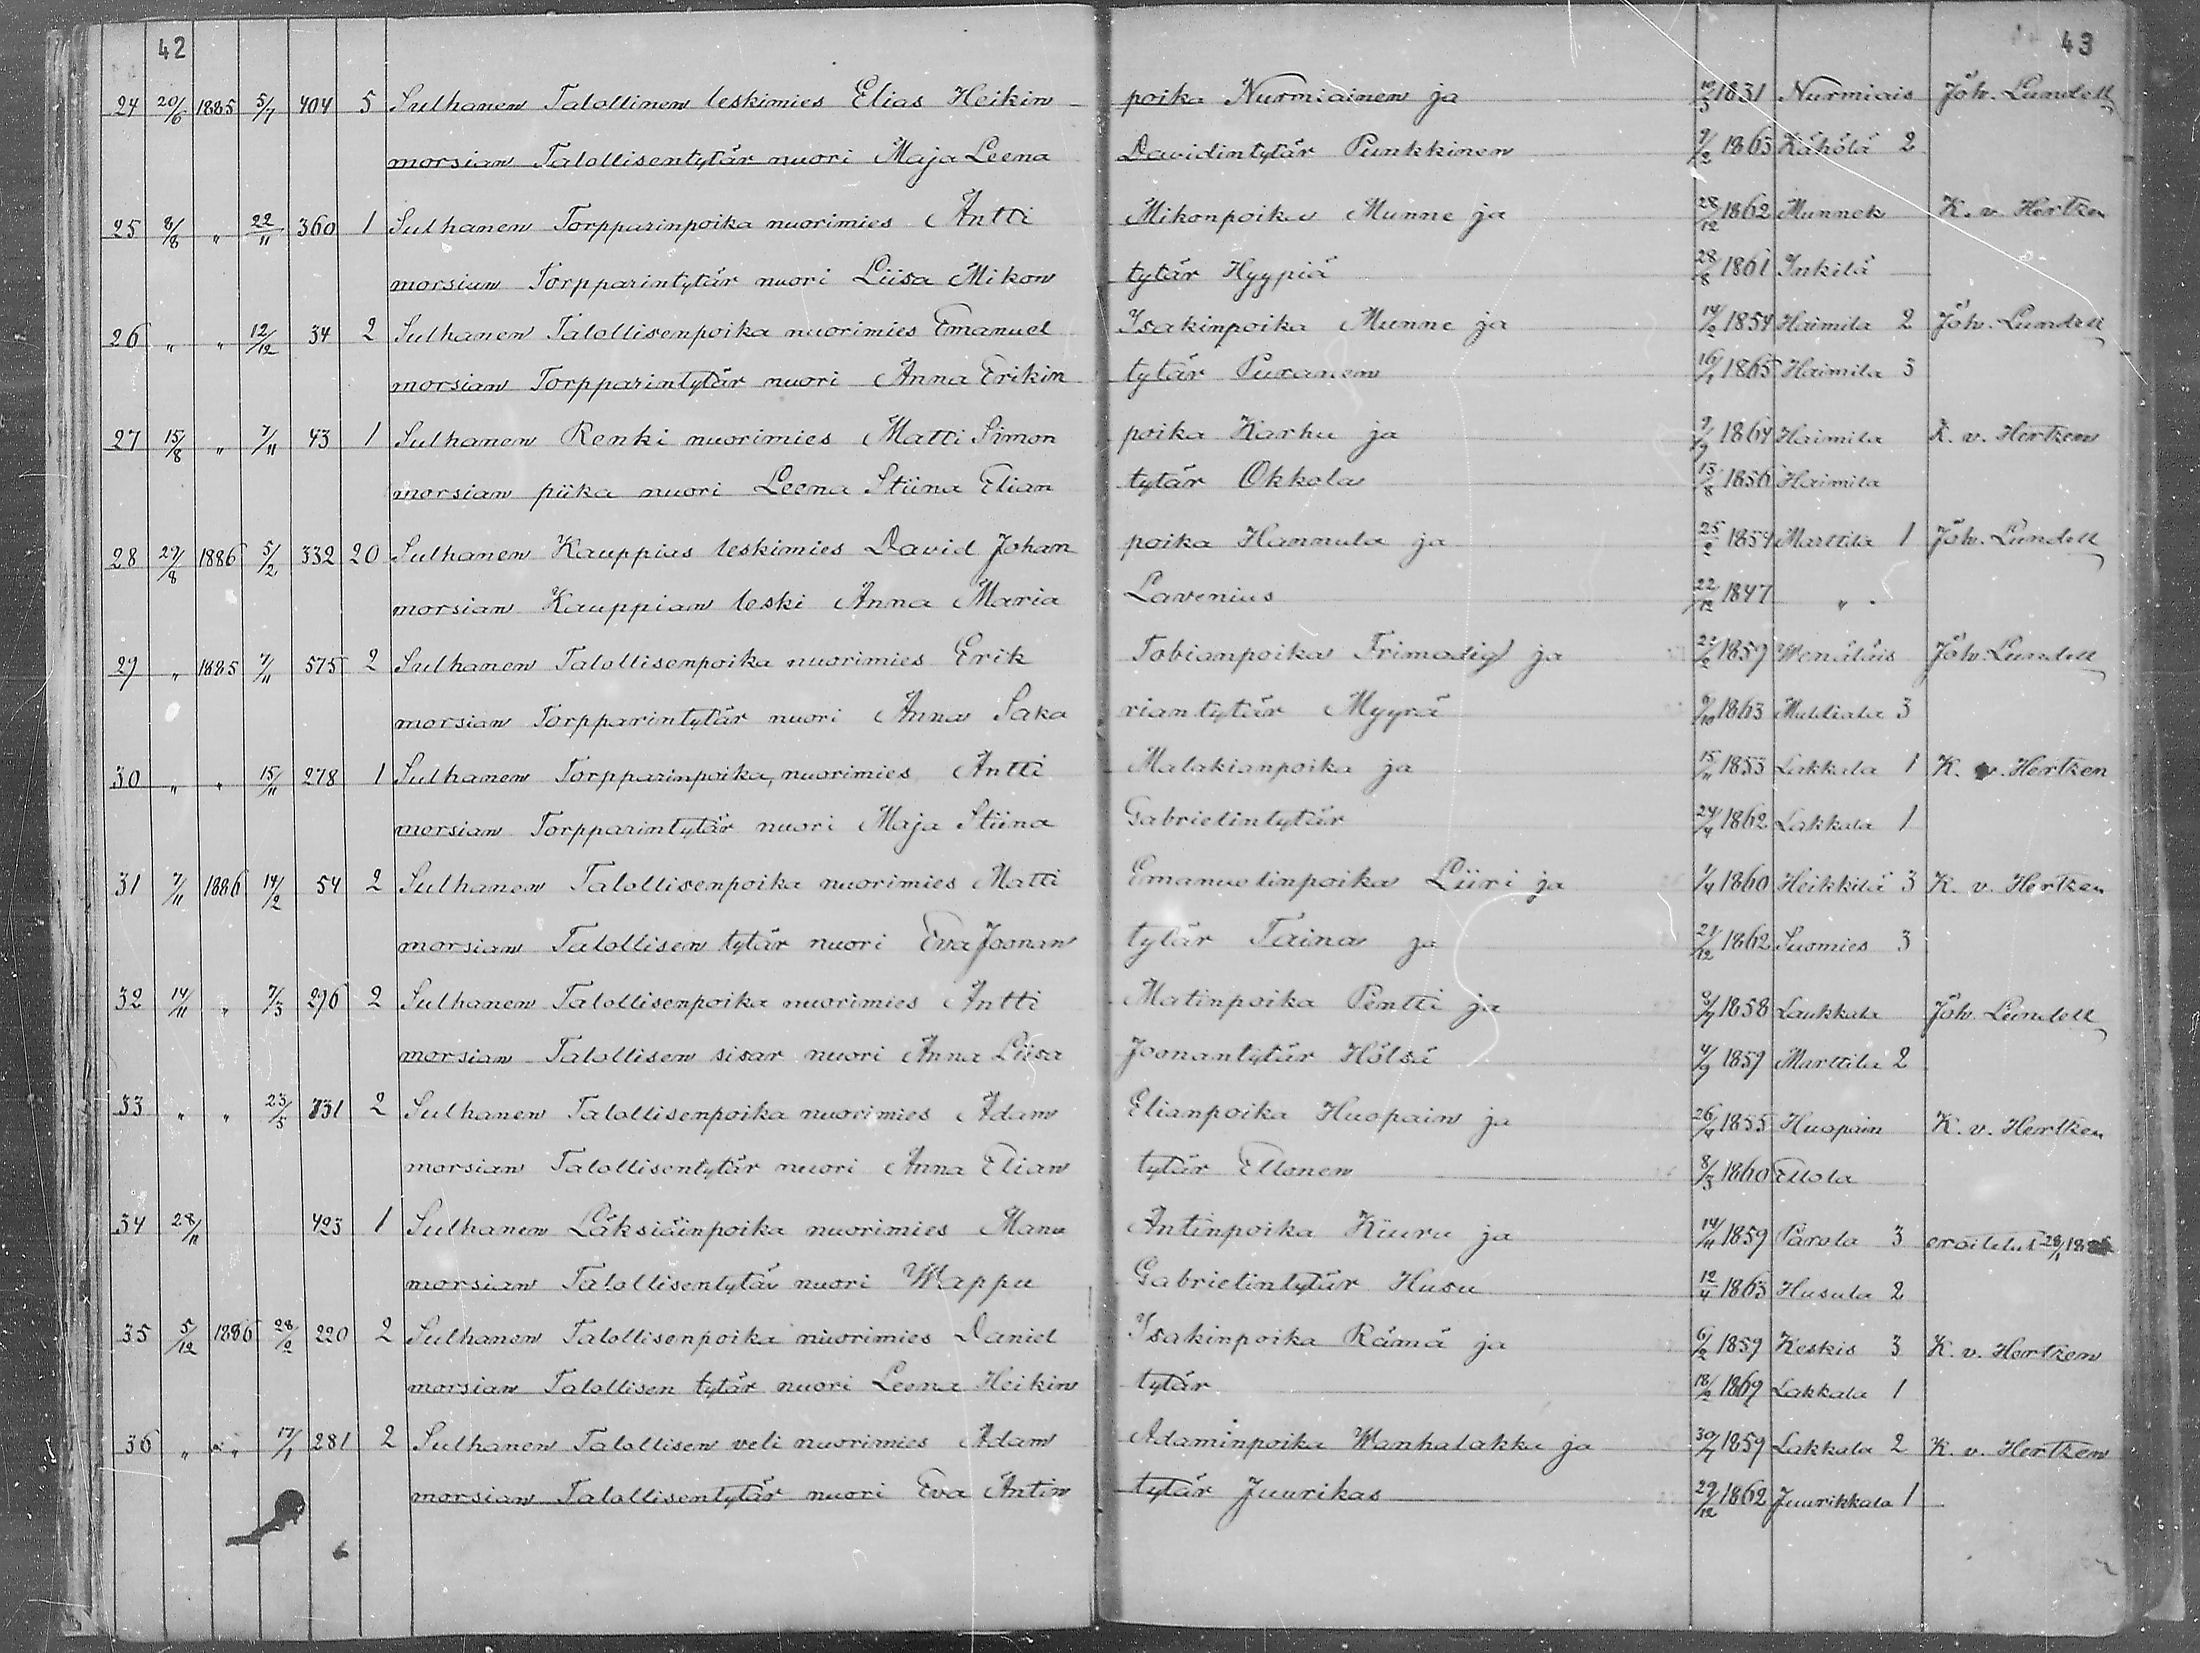 42
43
24 20/6 1885 5/7 404 5 Sulhanen Talollinen leskimies Elias Heikin poika Nurmiainen ja 1831 Nurmiais Joh. Lundell
morsian Talollisentytär nuori Maja Leena Davidintytär Punkkinen 9/2 1863 Kähölä 2
25 8/8 " 22/11 360 1 Sulhanen Torpparinpoika nuorimies Antti Mikonpoika Munne ja 28/12 1862 Munnek K. v. Hertzen
morsian Torpparintytär nuori Liisa Mikon tytär Hyypiä 28/8 1861 Inkilä
26 " " 12/12 34 2 Sulhanen Talollisenpoika nuorimies Emanuel Isakinpoika Munne ja 14/2 1854 Haimila 2 Joh. Lundell
morsian Torpparintytär nuori Anna Erikin tytär Puranen 16/1 1865 Haimila 3
27 15/8 " 7/11 43 1 Sulhanen Renki nuorimies Matti Simon poika Karhu ja 1864 Haimila K. v. Hertzen
morsian piika nuori Leena Stiina Elian tytär Okkola 13/8 1856 Haimila
28 29/8 1886 5/2 332 20 Sulhanen Kauppias leskimies David Johan poika Hannula ja 25/2 1854 Marttila 1 Joh. Lundell
morsian Kauppian leski Anna Maria Lavenius 22/12 1847 "
29 " 1885 7/11 575 2 Sulhanen Talollisenpoika nuorimies Erik Tobianpoika Frimodig ja 1859 Wenäläis Joh. Lundell
morsian Torpparintytär nuori Anna Saka riantytär Myyrä 9/10 1863 Muldiala 3
30 " " 15/11 278 1 Sulhanen Torpparinpoika, nuorimies Antti Malakianpoika ja 15/11 1853 Lakkala 1 K. v. Hertzen
morsian Torpparintytär nuori Maja Stiina Gabrielintytär 24/4 1862 Lakkala 1
31 7/11 1886 14/2 54 2 Sulhanen Talollisenpoika nuorimies Matti Emanuelinpoika Liiri ja 1/4 1860 Heikkilä 3 K. v. Hertzen
morsian Talollisen tytär nuori Eva Joonan tytär Taina ja 21/12 1862 Suomies 3
32 14/11 " 7/3 296 2 Sulhanen Talollisenpoika nuorimies Antti Matinpoika Pentti ja 1858 Laukkala Joh. Lundell
morsian Talollisen sisar nuori Anna Liisa Joonantytär Hölsä 4/9 1859 Marttila 2
33 " " 23/5 831 2 Sulhanen Talollisenpoika nuorimies Adam Elianpoika Huopain ja 26/4 1855 Huopain K. v. Hertzen
morsian Talollisentytär nuori Anna Elian tytär Ellonen 8/3 1860 Ellola
34 28/11 423 1 Sulhanen Läksiäinpoika nuorimies Manu Antinpoika Kiuru ja 14/11 1859 Parola 3 eroitetut
morsian Talollisentytär nuori Wappu Gabrielintytär Husu 12/4 1863 Husula 2
35 5/12 1886 28/2 220 2 Sulhanen Talollisenpoika nuorimies Daniel Isakinpoika Rämä ja 6/2 1859 Keskis 3 K. v. Hertzen
morsian Talollisen tytär nuori Leena Heikin tytär 18/2 1869 Lakkala 1
36 " " 17/1 281 2 Sulhanen Talollisen veli nuorimies Adam Adaminpoika Wanhalakka ja 1859 Lakkala 2 K. v. Hertzen
morsian Talollisentytär nuori Eva Antin tytär Juurikas 29/12 1862 Juurikkala 1